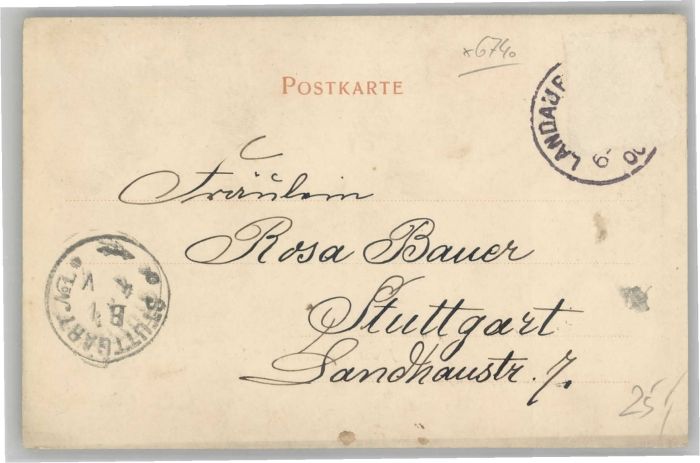 x6740
POSTKARTE
LANDAU P
Fräulein
Rosa Bauer
Stuttgart
Landhausstr. 7.
STUTTGART
25